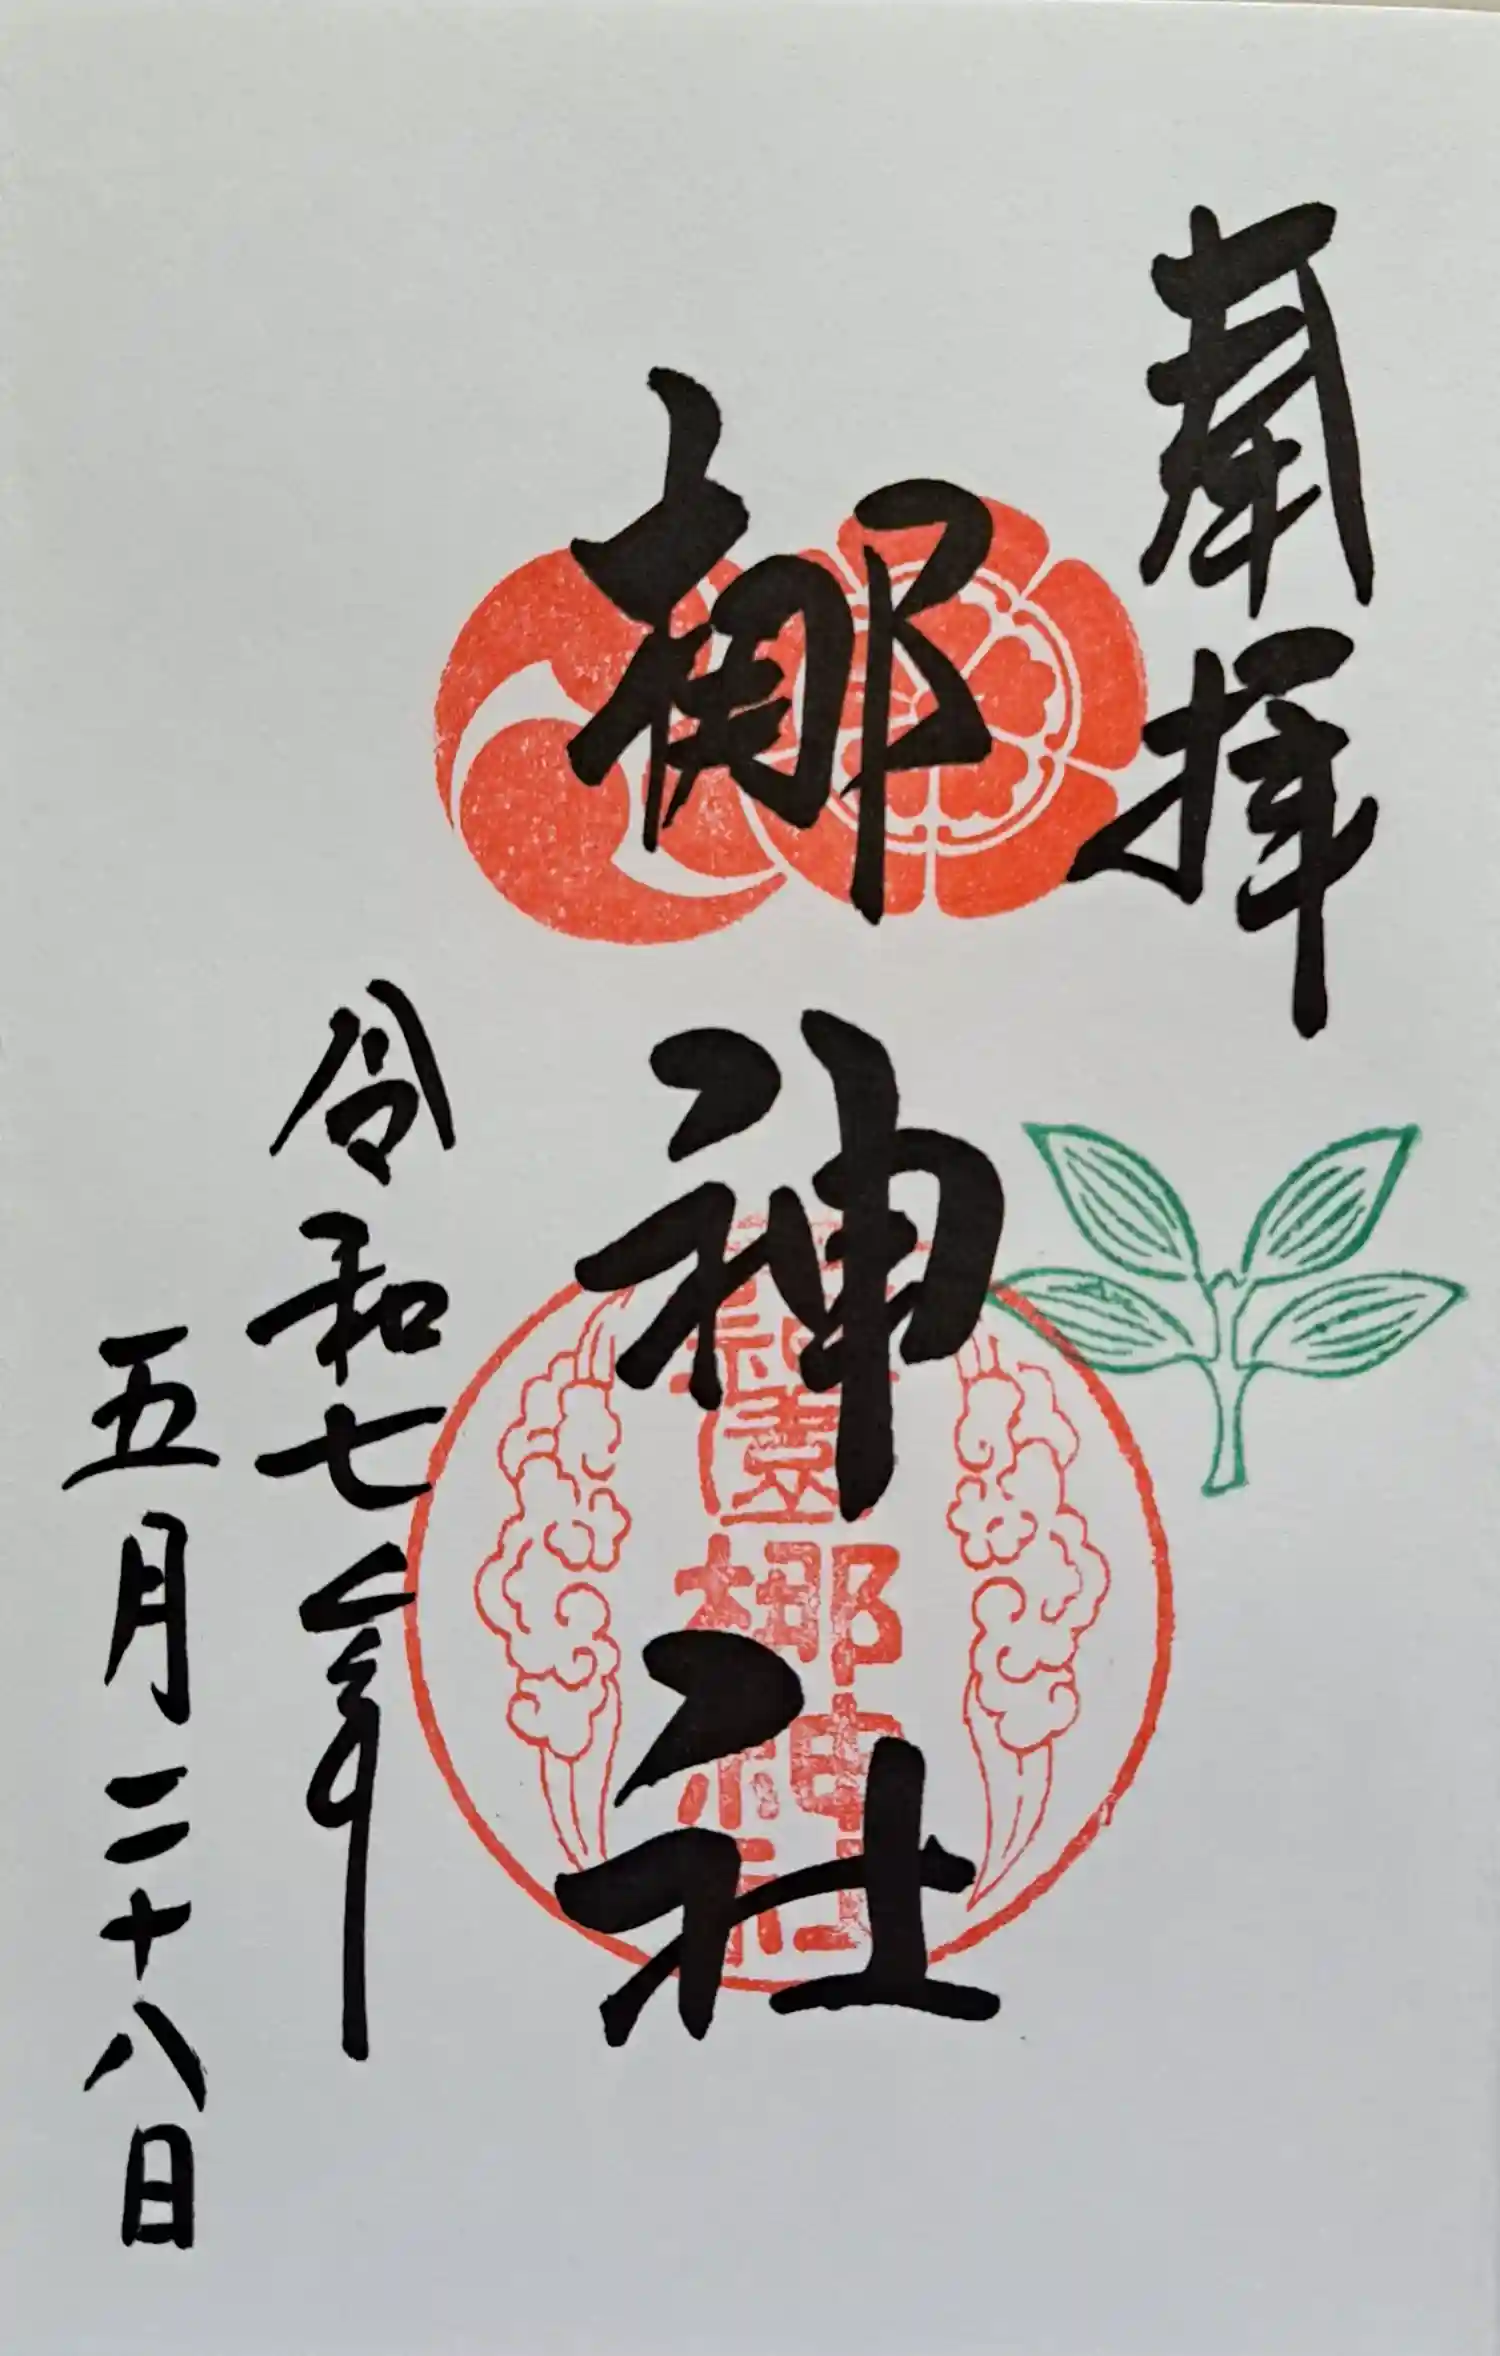 奉拝
梛神社
元祇園梛神社
令和七年
五月二十八日